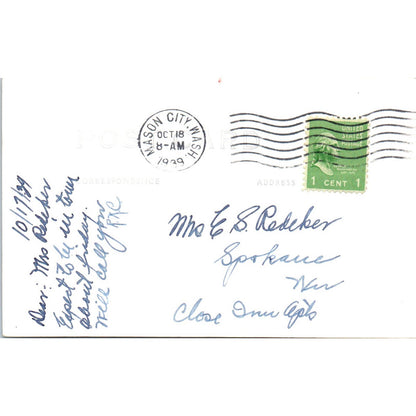 MASON CITY, WASH.
OCT 18
8-AM
1939
UNITED
STATES
POSTAGE
1 CENT 1
POST CARD
CORRESPONDENCE
ADDRESS
10/17/39
Dear: Mrs Redeker
Expect to be in town
about friday.
will call you
Mrs E. S. Redeker
Spokane
Wn
Close Inn Apts